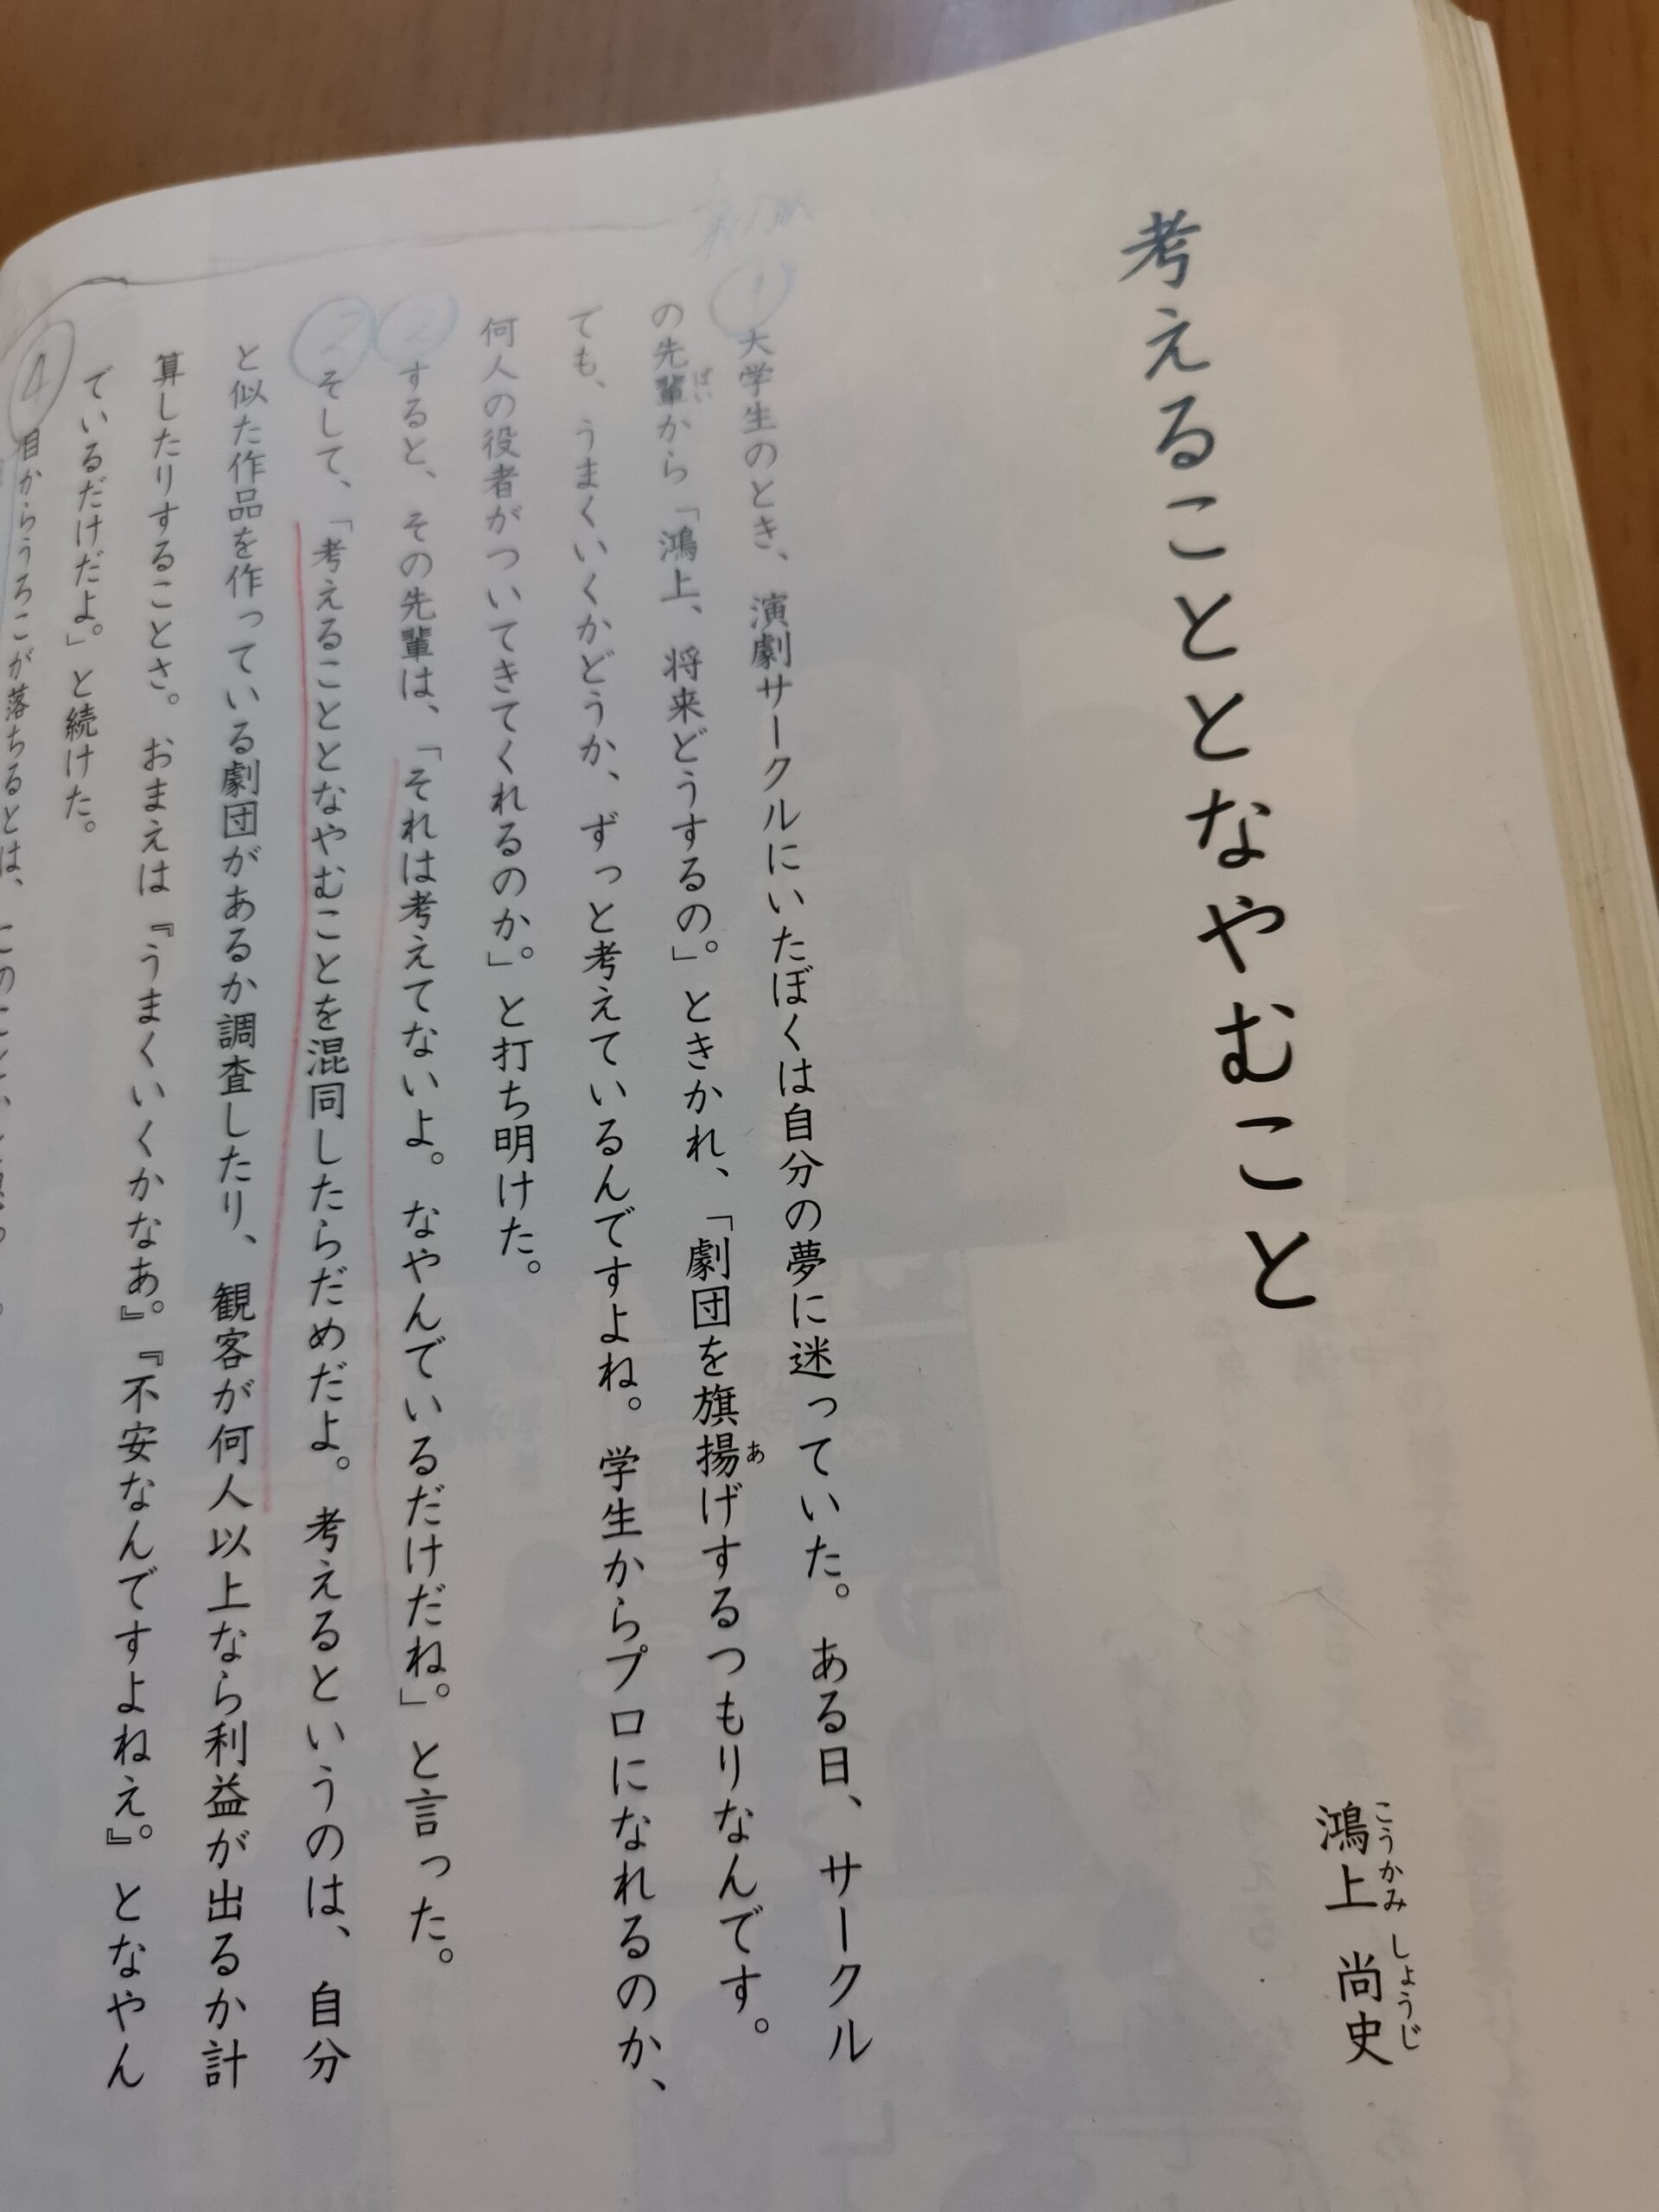 考えることとなやむこと
鴻上 尚史
こうかみ しょうじ
①
大学生のとき、演劇サークルにいたぼくは自分の夢に迷っていた。ある日、サークル
の先輩から「鴻上、将来どうするの。」ときかれ、「劇団を旗揚げするつもりなんです。
ぱい
あ
ても、うまくいくかどうか、ずっと考えているんですよね。学生からプロになれるのか、
何人の役者がついてきてくれるのか。」と打ち明けた。
②
すると、その先輩は、「それは考えてないよ。なやんでいるだけだね。」と言った。
そして、「考えることとなやむことを混同したらだめだよ。考えるというのは、自分
と似た作品を作っている劇団があるか調査したり、観客が何人以上なら利益が出るか計
算したりすることさ。おまえは『うまくいくかなあ。』『不安なんですよねえ。』となやん
でいるだけだよ。」と続けた。
④
目からうろこが落ちるとは、